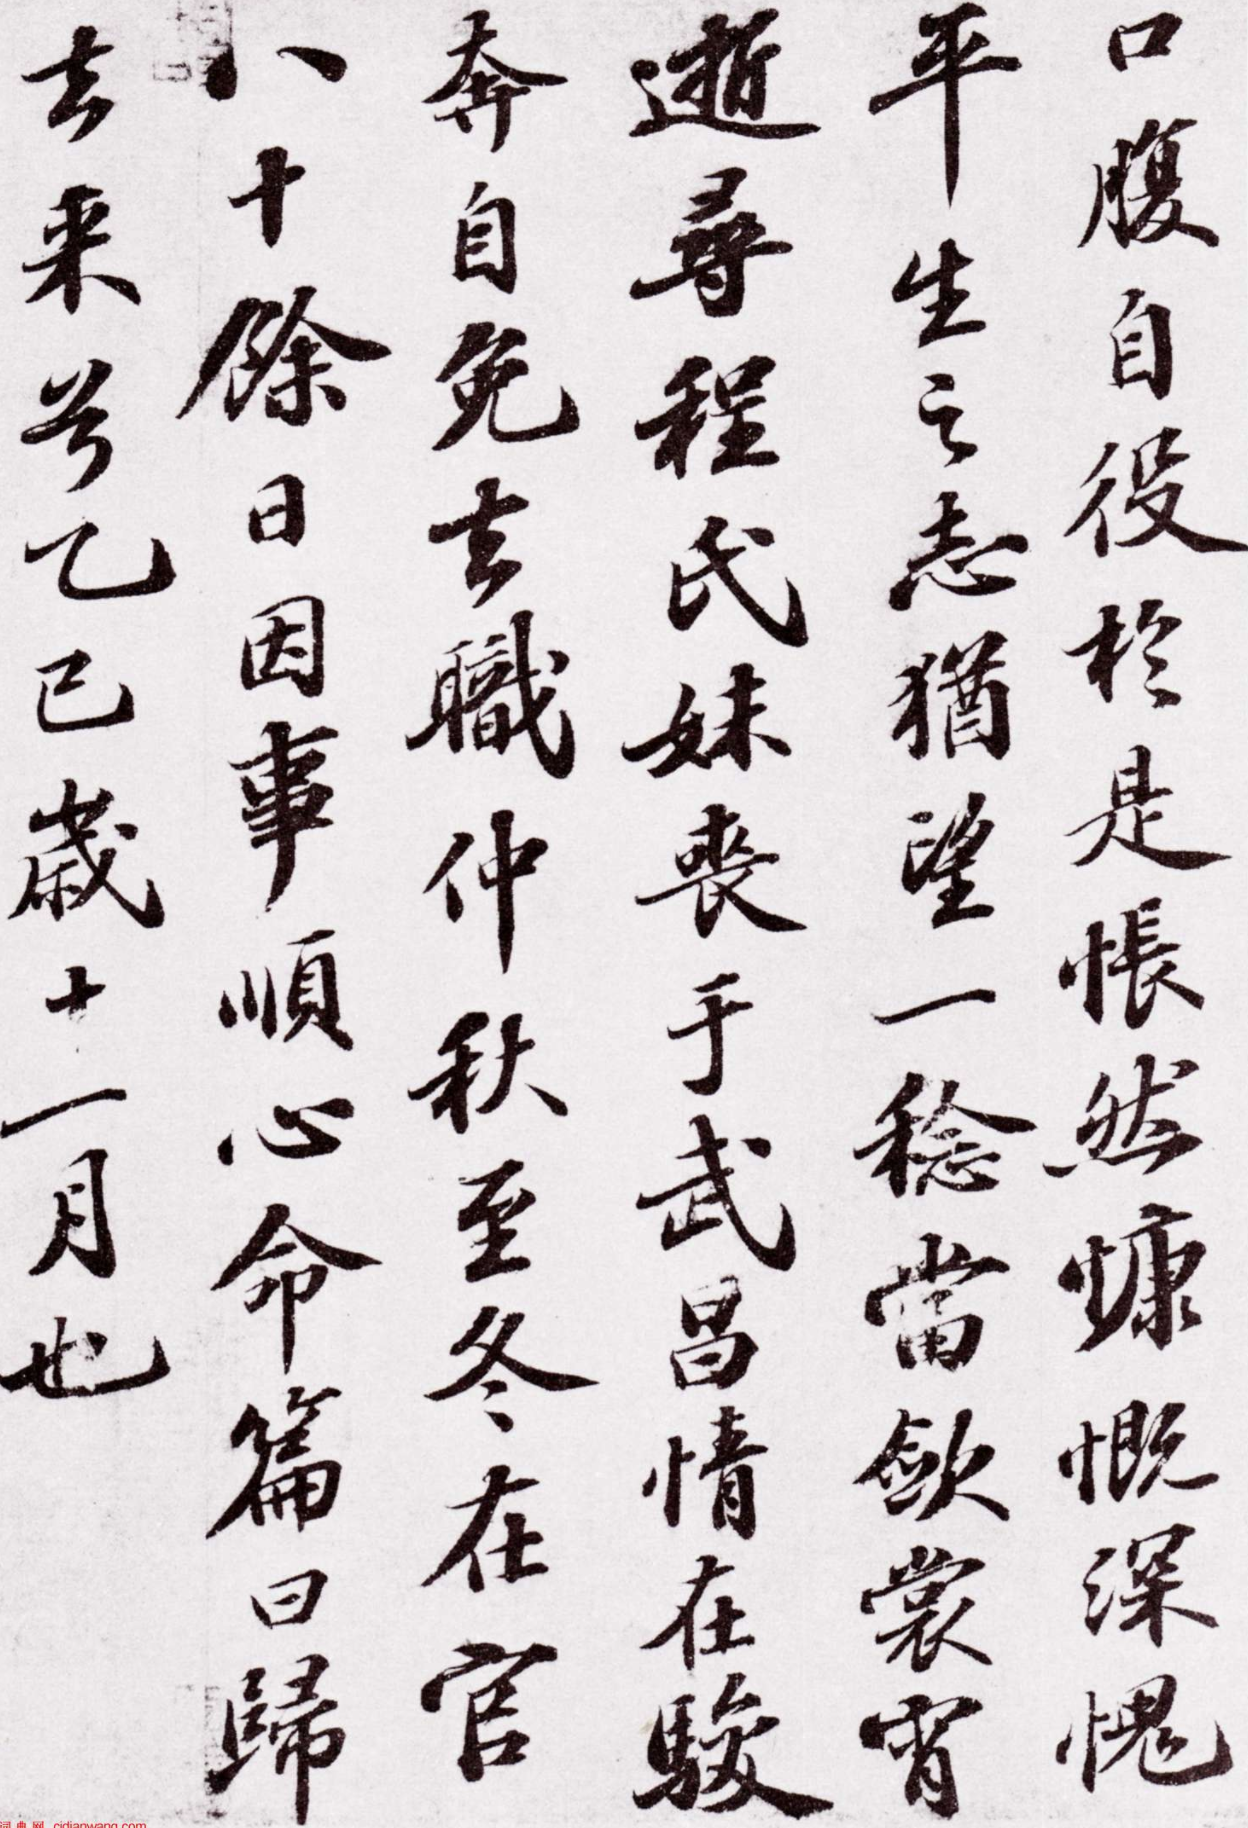 口腹自役於是悵然慷慨深愧
平生之志猶望一稔當斂裳宵
逝尋程氏妹喪于武昌情在駿
奔自免去職仲秋至冬在官
八十餘日因事順心命篇曰歸
去来兮乙巳歲十一月也
词典网 cidianwang.com